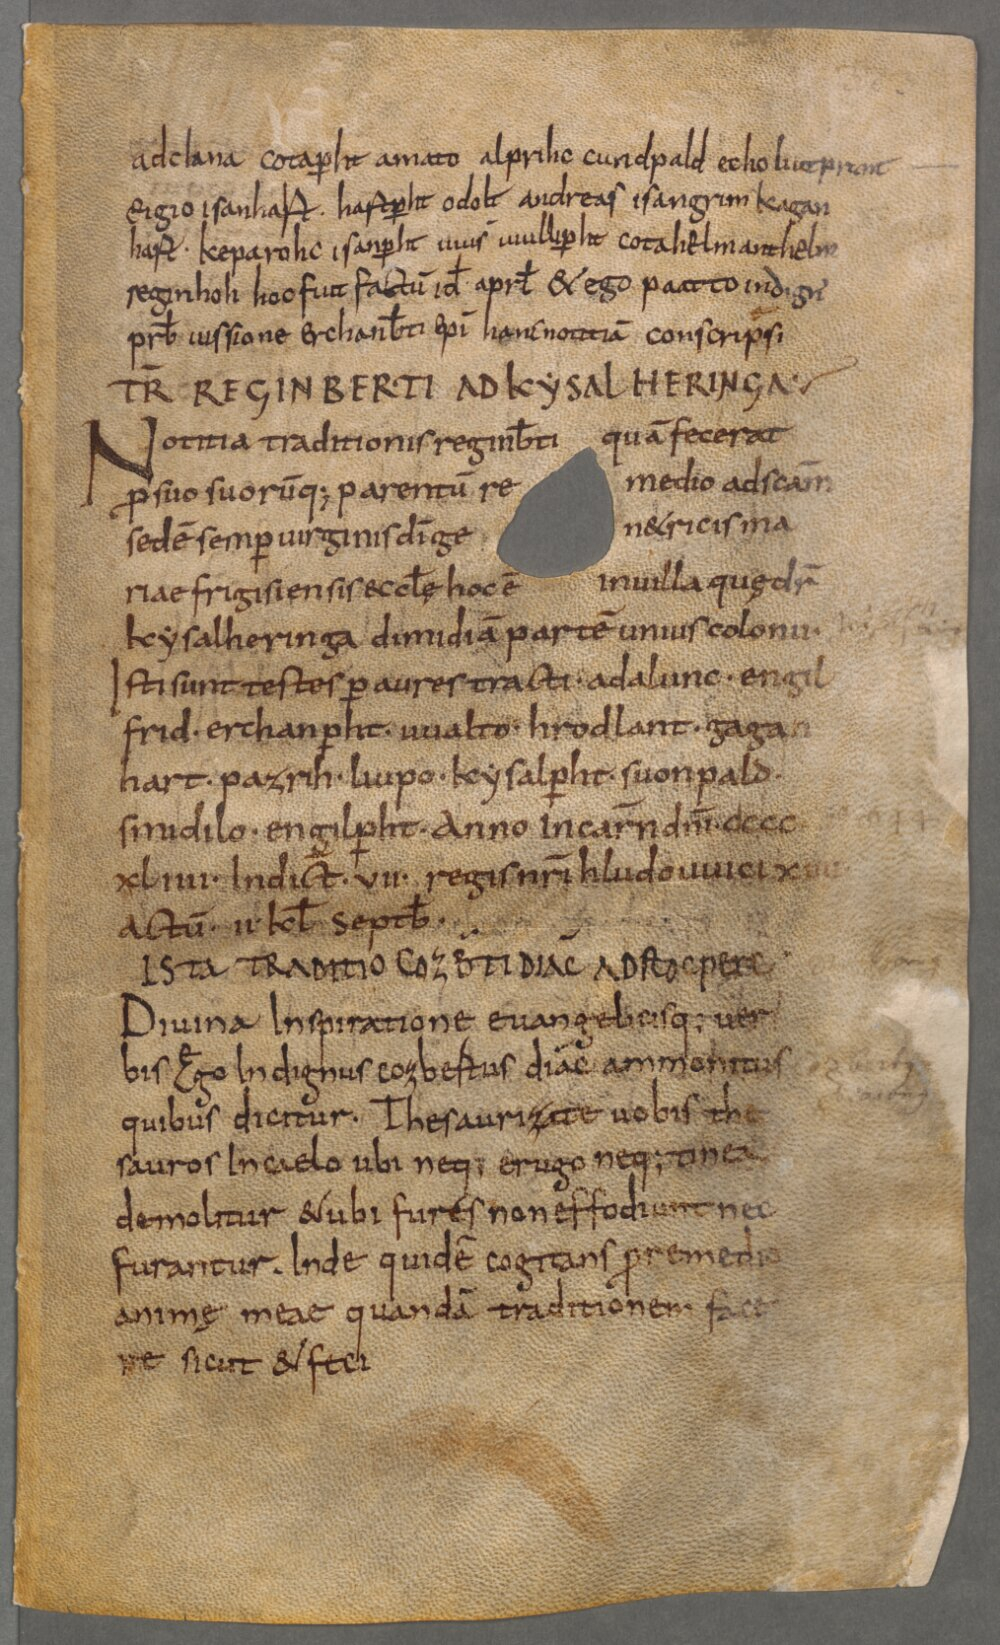 adclana cotaꝑht amato alprihc cundpald echo liutprant
Eigio isanhaft · haftꝑht odolt andreas isangrim kagan
haft · keparohc isanꝑht uuis uuilliꝑht cotahelm anthelm
reginholi hoc fuit factū id apr̄l & ego patto indign
prb̄ iussione erchanb̄ti ep̄i hanc notitiā conscripsi
TR̄ REGINBERTI AD KẎSALHERINGA·
Notitia traditionis reginb̄ti quā fecerat
ꝓ suo suorūq; parentū re medio ad sc̄am
sedē semꝑ uirginis dī ge n&ricis ma
riae frigisiensis eccl̄ę hoc ē in uilla quę dr̄
kẏsalheringa dimidiā partē unius colonii·
Isti sunt testes ꝑ aures tracti· adalunc· engil
frid· erchanꝑht· uualto· hrodlant· gagan
hart· pazrih· liupo· kẏsalꝑht· suonpald·
smidilo· engilꝑht· Anno Incarn̄ dn̄i· dcccc
xliiii· Indict̄· vii· regis nr̄i hludouuici
actū· ii· kl̄ Septb̄·
ISTA TRADITIO COZB̄TI DIAC̄ AD
DIUINA Inspiratione euangelicisq; uer
bis Ego Indignus cozbertus diac̄ ammonitus
quibus dicitur. Thesaurizate uobis the
sauros In caelo ubi neq; erugo neq; tinea
demolitur & ubi fures non effodiunt nec
furantur. Inde quidē cogitans ꝓ remedio
animę meae quandā traditionem face
re sicut & feci